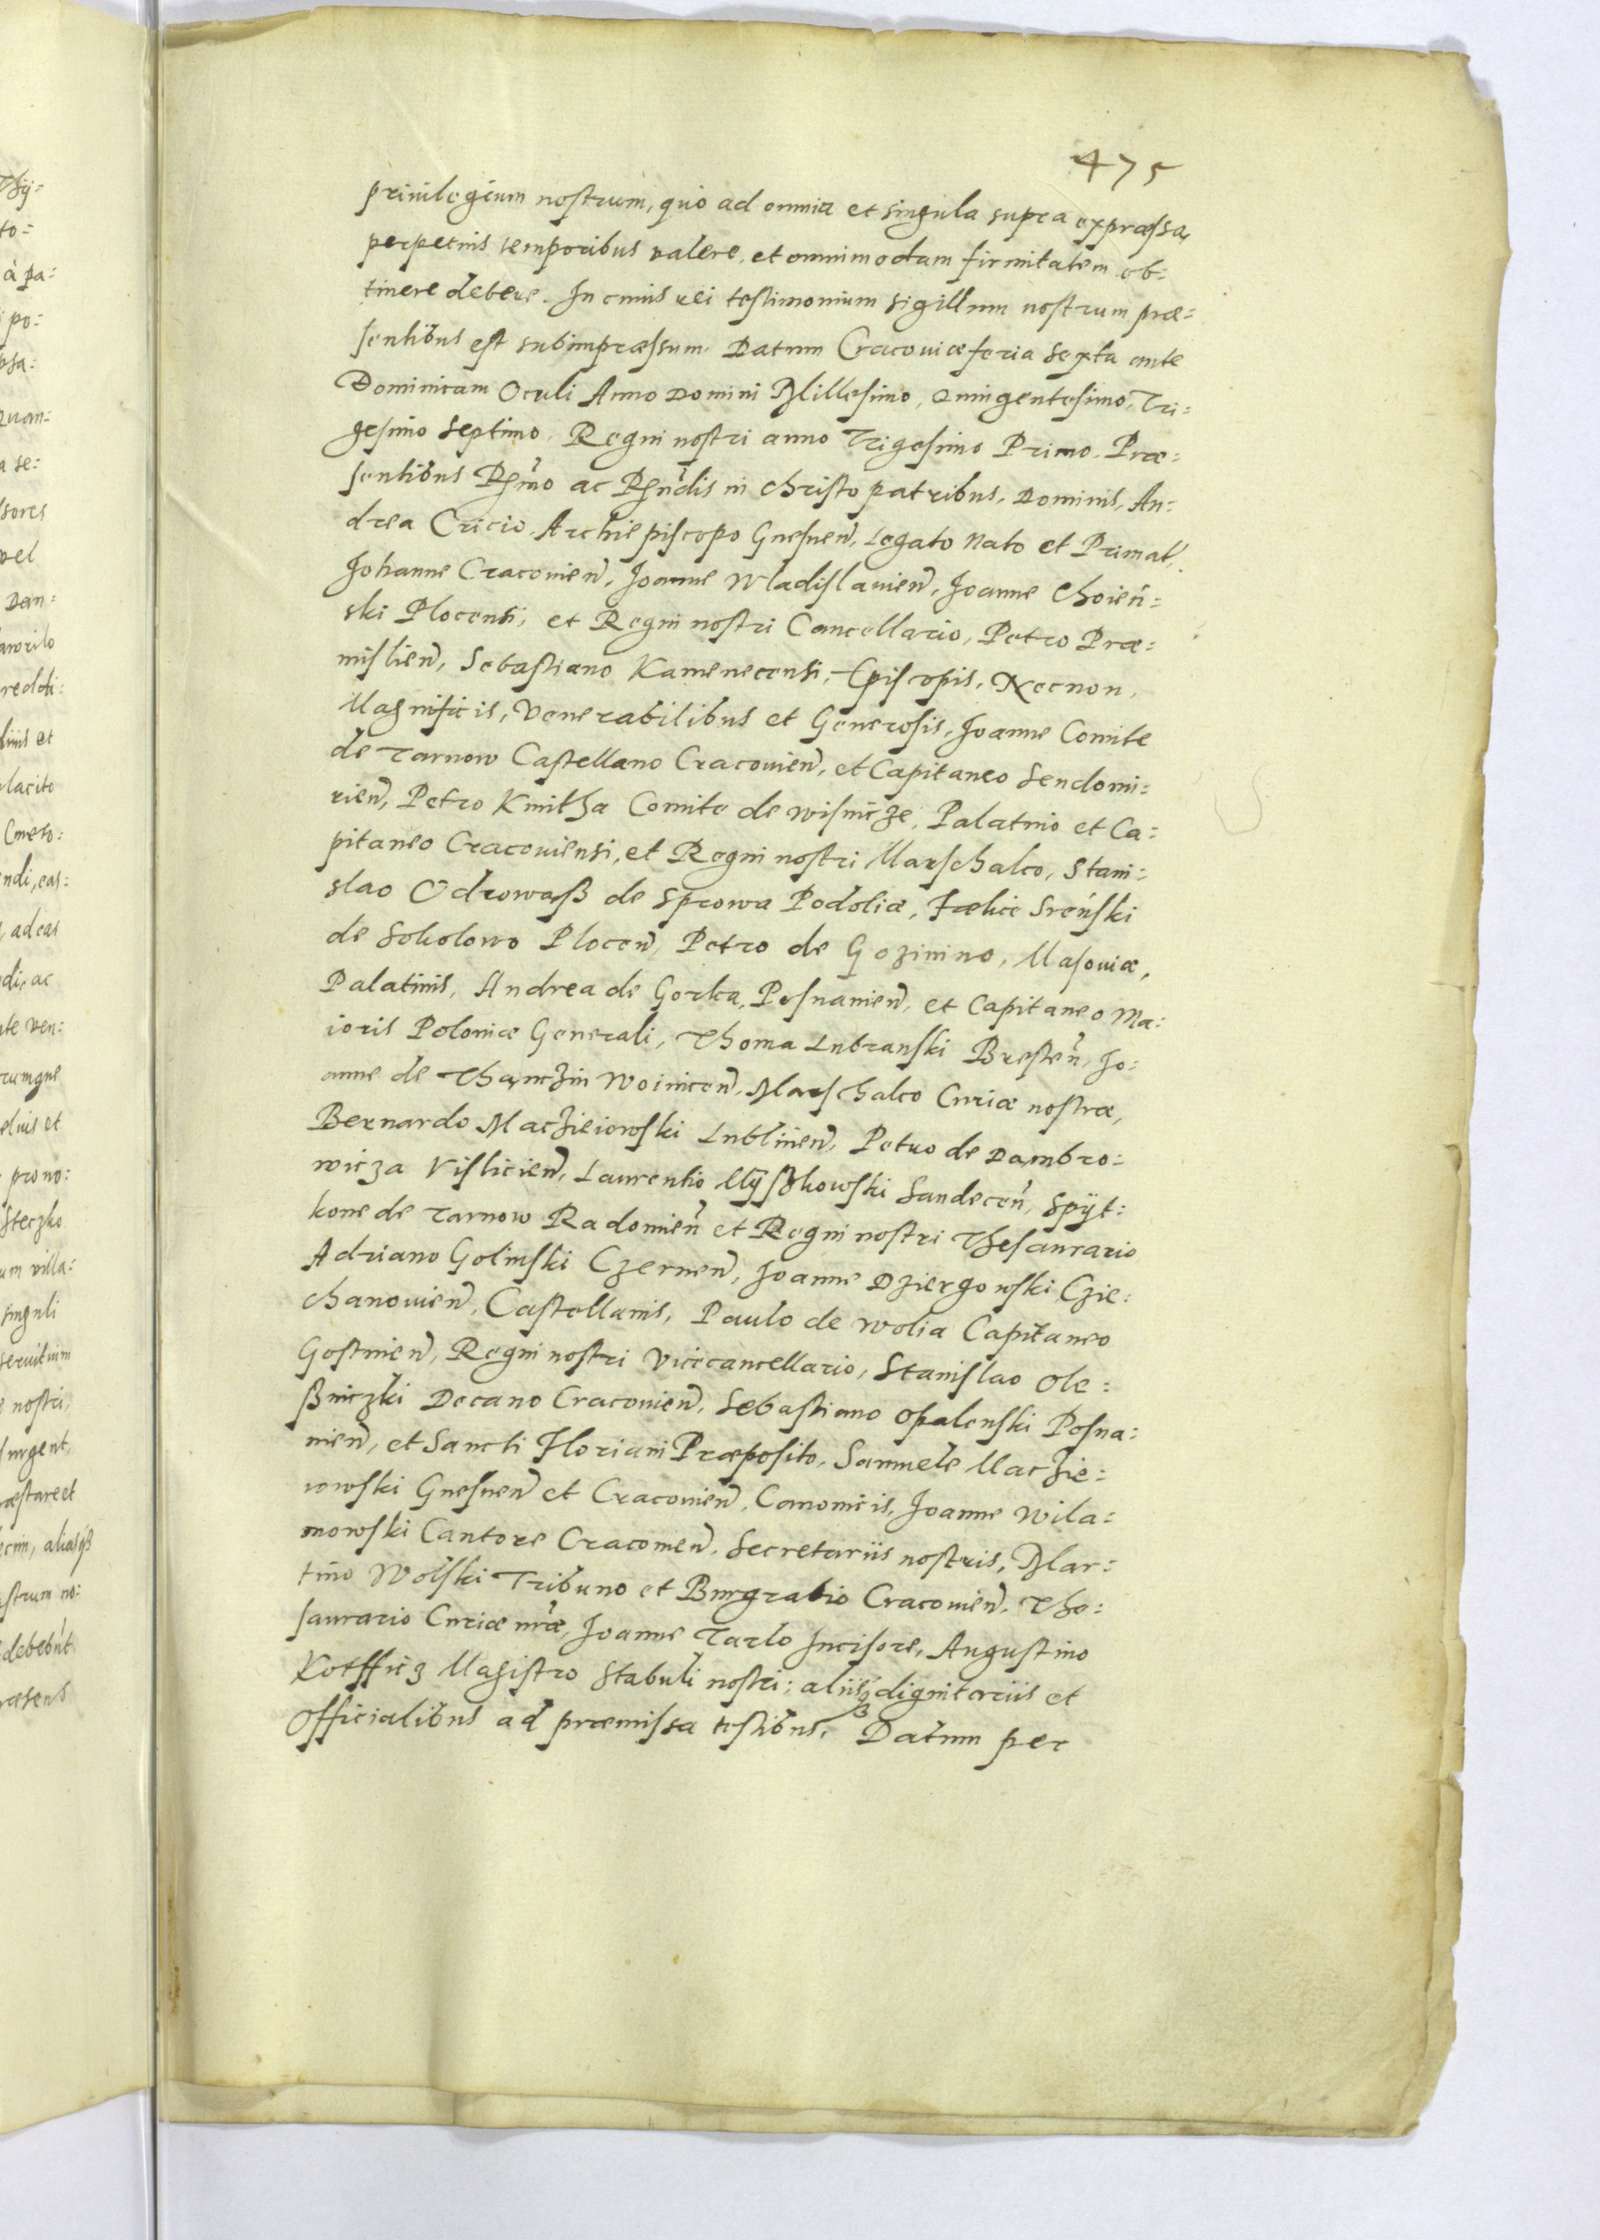 475
priuilegium nostrum, quo ad omnia et singula supra expræssa,
perpetuis temporibus valere, et omnimodam firmitatem ob=
tinere debere. In cuius rei testimonium sigillum nostrum præ=
sentibus est subimpræssum. Datum Cracouiæ feria sexta ante
Dominicam Oculi Anno Domini Millesimo, Quingentesimo, Tri=
gesimo Septimo, Regni nostri anno Trigesimo Primo. Præ=
sentibus Rmo ac Rndis in Christo patribus, Dominis, An=
drea Cricio, Archiepiscopo Gnesnen, Legato Nato et Primat,
Johanne Cracouien, Joanne Wladislauien, Joanne Choień=
ski Plocensi, et Regni nostri Cancellario, Petro Præ=
mislien, Sebastiano Kamenecensi, Episcopis, Necnon,
Magnificis, Venerabilibus et Generosis, Joanne Comite
de Tarnow Castellano Cracouien, et Capitaneo Sendomi=
rien, Petro Kmitha Comite de Wisnicze, Palatino et Ca=
pitaneo Cracouiensi, et Regni nostri Marschalco, Stani=
slao Odrowąß de Sprowa Podoliæ, Fœlice Sreński
de Sokolowo Plocen, Petro de Gozinino, Masouiæ,
Palatinis, Andrea de Gorka, Posnanien, et Capitaneo Ma=
ioris Poloniæ Generali, Thoma Lubranski Bresten, Jo=
anne de Thanczin Woinicen, Marschalco Curiæ nostræ,
Bernardo Macziejowski Lublinen, Petro de Dambro=
wicza Vislicien, Laurentio Myßkowski Sandecen, Spÿt=
kone de Tarnow Radomien et Regni nostri Thesaurario
Adriano Golinski Czernen, Joanne Dziergowski Czie=
chanouien, Castellanis, Paulo de Wolia Capitaneo
Gostinen, Regni nostri Vicecancellario, Stanislao Ole=
ßniczki Decano Cracouien, Sebastiano Opalenski Posna=
nien, et Sancti Floriani Præposito, Samuele Maczie=
iowski Gnesnen et Cracouien, Canonicis, Joanne Wila=
mowski Cantore Cracouien, Secretariis nostris, Mar=
tino Wolski Tribuno et Burgrabio Cracouien, The=
saurario Curiæ nræ, Joanne Tarlo Incisore, Augustino
Kotfficz Magistro Stabuli nostri; aliisqꝫ dignitariis et
Officialibus ad præmissa testibus, Datum per